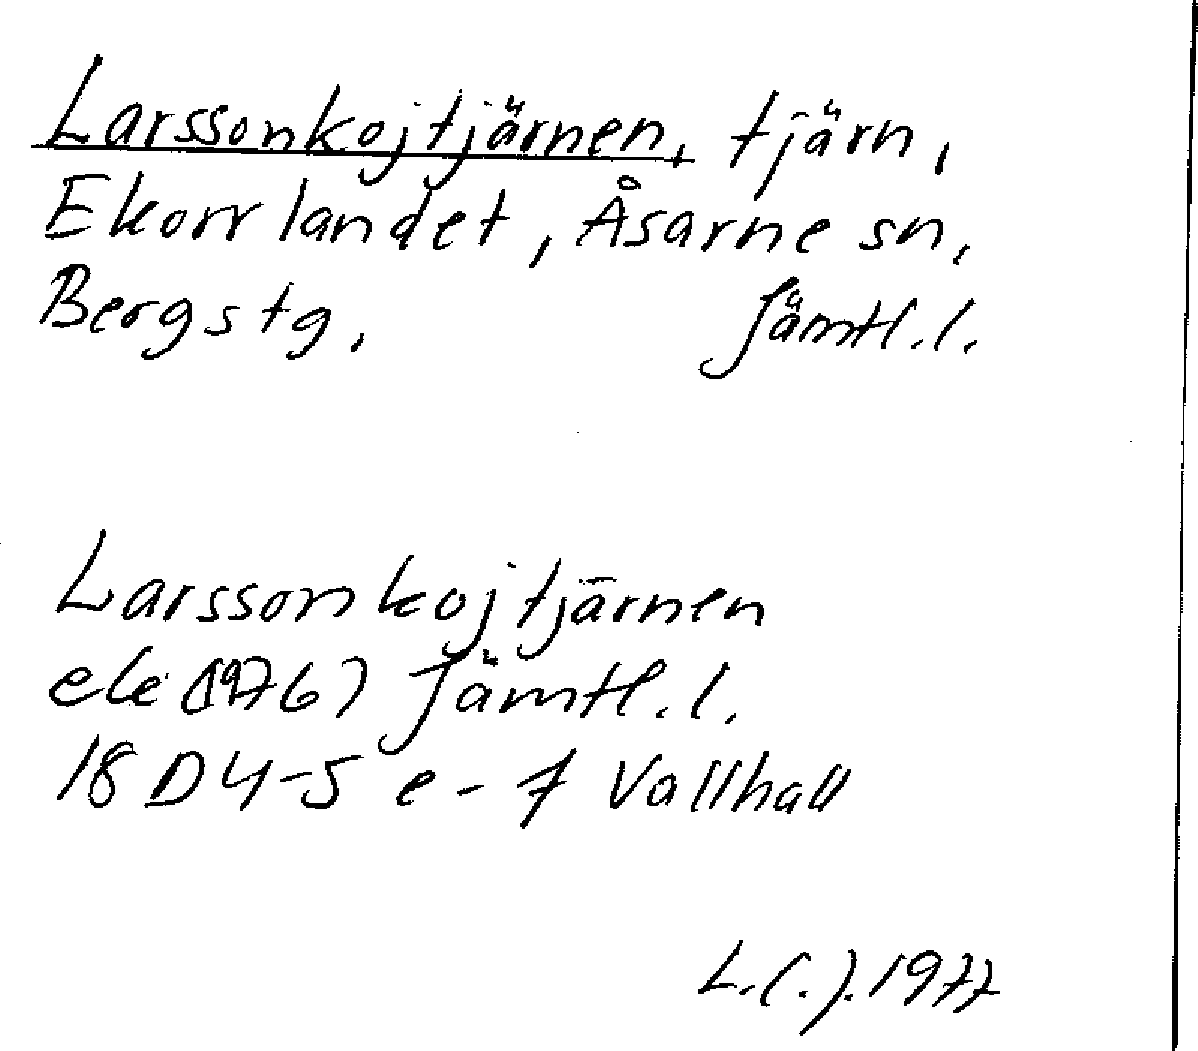 Larssonkojtjärnen, tjärn,
Ekorrlandet, Åsarne sn,
Bergs tg, Jämtl. l.
Larssonkojtjärnen
ek (1976) Jämtl. l.
18 D 4-5 e-f Vallhall
L. (.). 1977